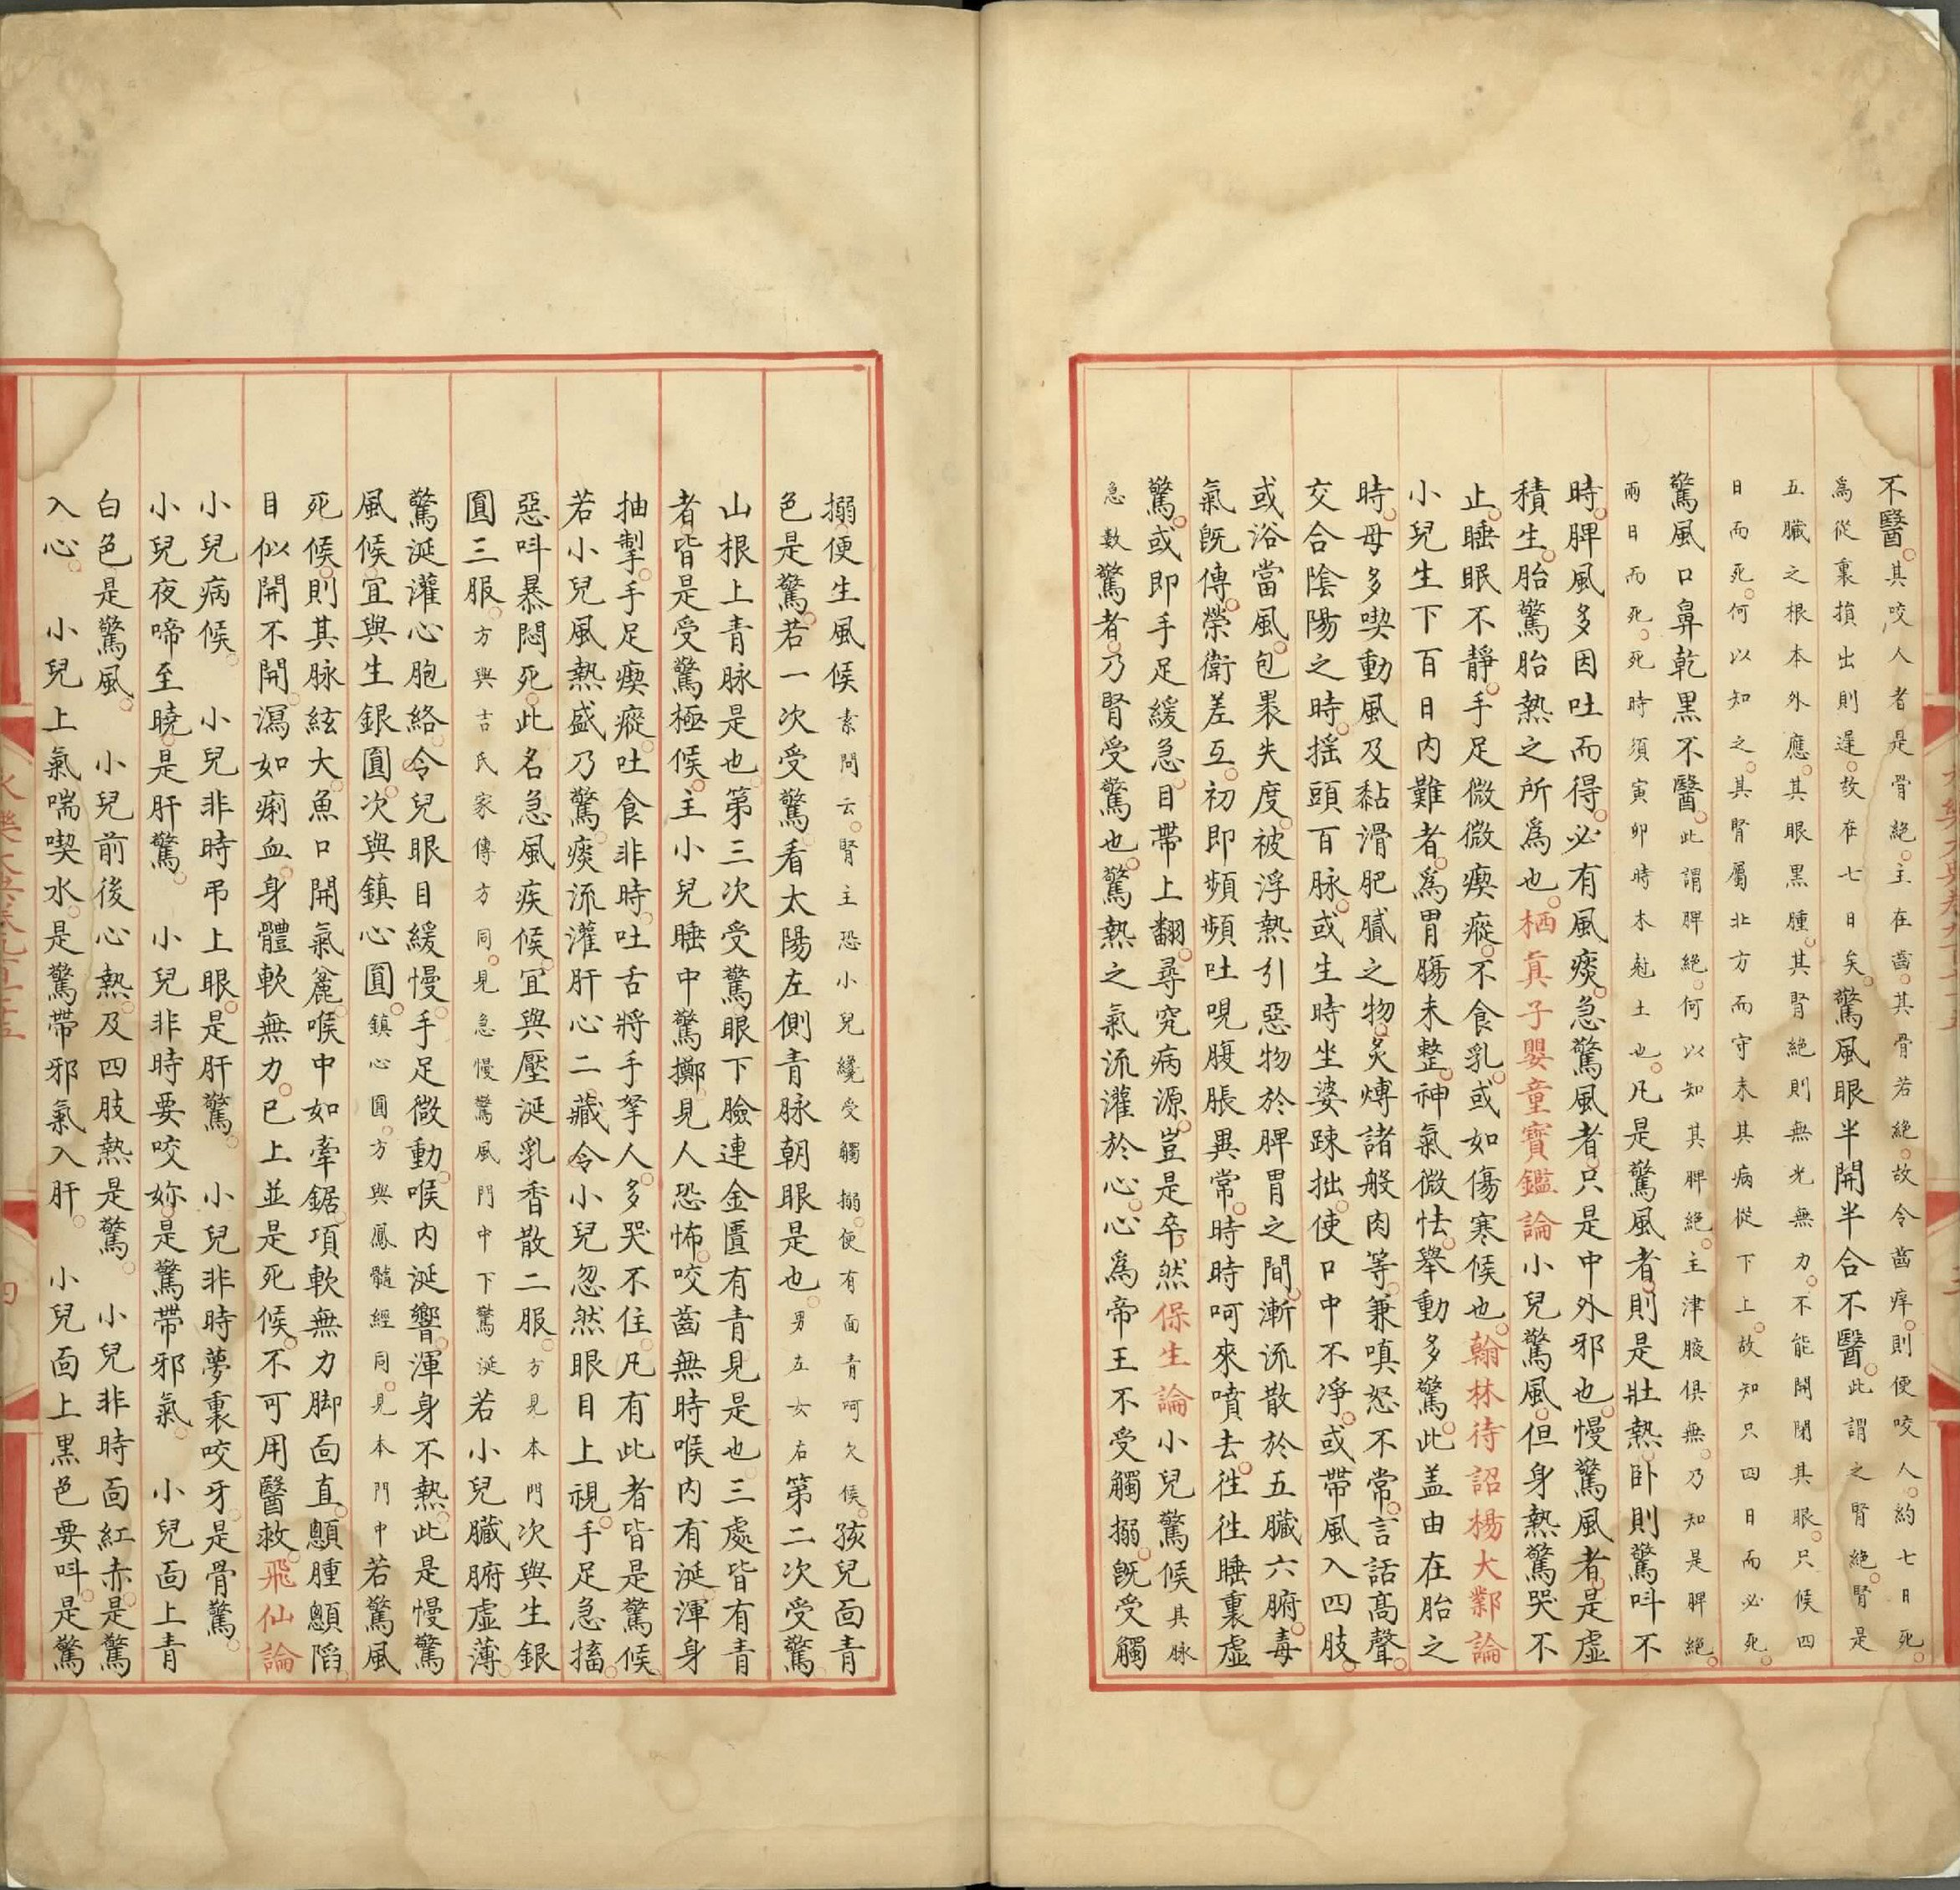 不醫其咬人者是骨絕主在齒其骨若絕故令齒痒則便咬人約七日死
爲從裏損出則遲故在七日矣驚風眼半開半合不醫此謂之腎絕腎是
五臟之根本外應其眼黑腫其腎絕則無光無力不能開閉其眼只候四
日而死何以知之其腎屬北方而守末其病從下上故知只四日而必死
驚風口鼻乾黑不醫此謂脾絕何以知其脾絕主津腋俱無乃知是脾絕
兩日而死死時須寅卯時木尅土也凡是驚風者則是壯熱卧則驚呌不
時脾風多因吐而得必有風痰急驚風者只是中外邪也慢驚風者是虛
積生胎驚胎熱之所爲也栖真子嬰童寶鑑論小兒驚風但身熱驚哭不
止睡眠不靜手足微微瘈瘲不食乳或如傷寒候也翰林待詔楊大鄴論
小兒生下百日內難者爲胃腸未整神氣微怯舉動多驚此盖由在胎之
時母多喫動風及黏滑肥膩之物炙煿諸般肉等兼嗔怒不常言話髙聲
交合陰陽之時搖頭百脉或生時坐婆踈拙使口中不凈或帶風入四肢
或浴當風包褁失度被浮熱引惡物於脾胃之間漸流散於五臟六腑毒
氣旣傳榮衛差互初即頻頻吐哯腹脹異常時時呵來噴去徃徃睡裏虛
驚或即手足緩急目帶上翻尋究病源豈是卒然保生論小兒驚候其脉
急數驚者乃腎受驚也驚熱之氣流灌於心心爲帝王不受觸搦旣受觸
搦便生風候素問云腎主恐小兒纔受觸搦便有面靑呵欠候孩兒面青
色是驚若一次受驚看太陽左側青脉朝眼是也男左女右第二次受驚
山根上青脉是也第三次受驚眼下臉連金匱有青見是也三處皆有青
者皆是受驚極候主小兒睡中驚擲見人恐怖咬齒無時喉內有涎渾身
抽掣手足瘈瘲吐食非時吐舌將手拏人多哭不住凡有此者皆是驚候
若小兒風熱盛乃驚痰流灌肝心二藏令小兒忽然眼目上視手足急搐
惡呌暴悶死此名急風疾候宜與壓涎乳香散二服方見本門次與生銀
圓三服方與吉氏家傳方同見急慢驚風門中下驚涎若小兒臟腑虛薄
驚涎灌心胞絡令兒眼目緩慢手足微動喉內涎響渾身不熱此是慢驚
風候宜與生銀圓次與鎮心圓鎮心圓方與鳳髓經同見本門中若驚風
死候則其脉絃大魚口開氣麄喉中如牽鋸項軟無力脚面直顖腫顖䧟
目似開不開瀉如痢血身體軟無力已上並是死候不可用醫救飛仙論
小兒病候　小兒非時弔上眼是肝驚　小兒非時夢裏咬牙是骨驚
小兒夜啼至曉是肝驚　小兒非時要咬妳是驚帶邪氣　小兒面上青
白色是驚風　小兒前後心熱及四肢熱是驚　小兒非時面紅赤是驚
入心　小兒上氣喘喫水是驚帶邪氣入肝　小兒面上黑色要呌是驚